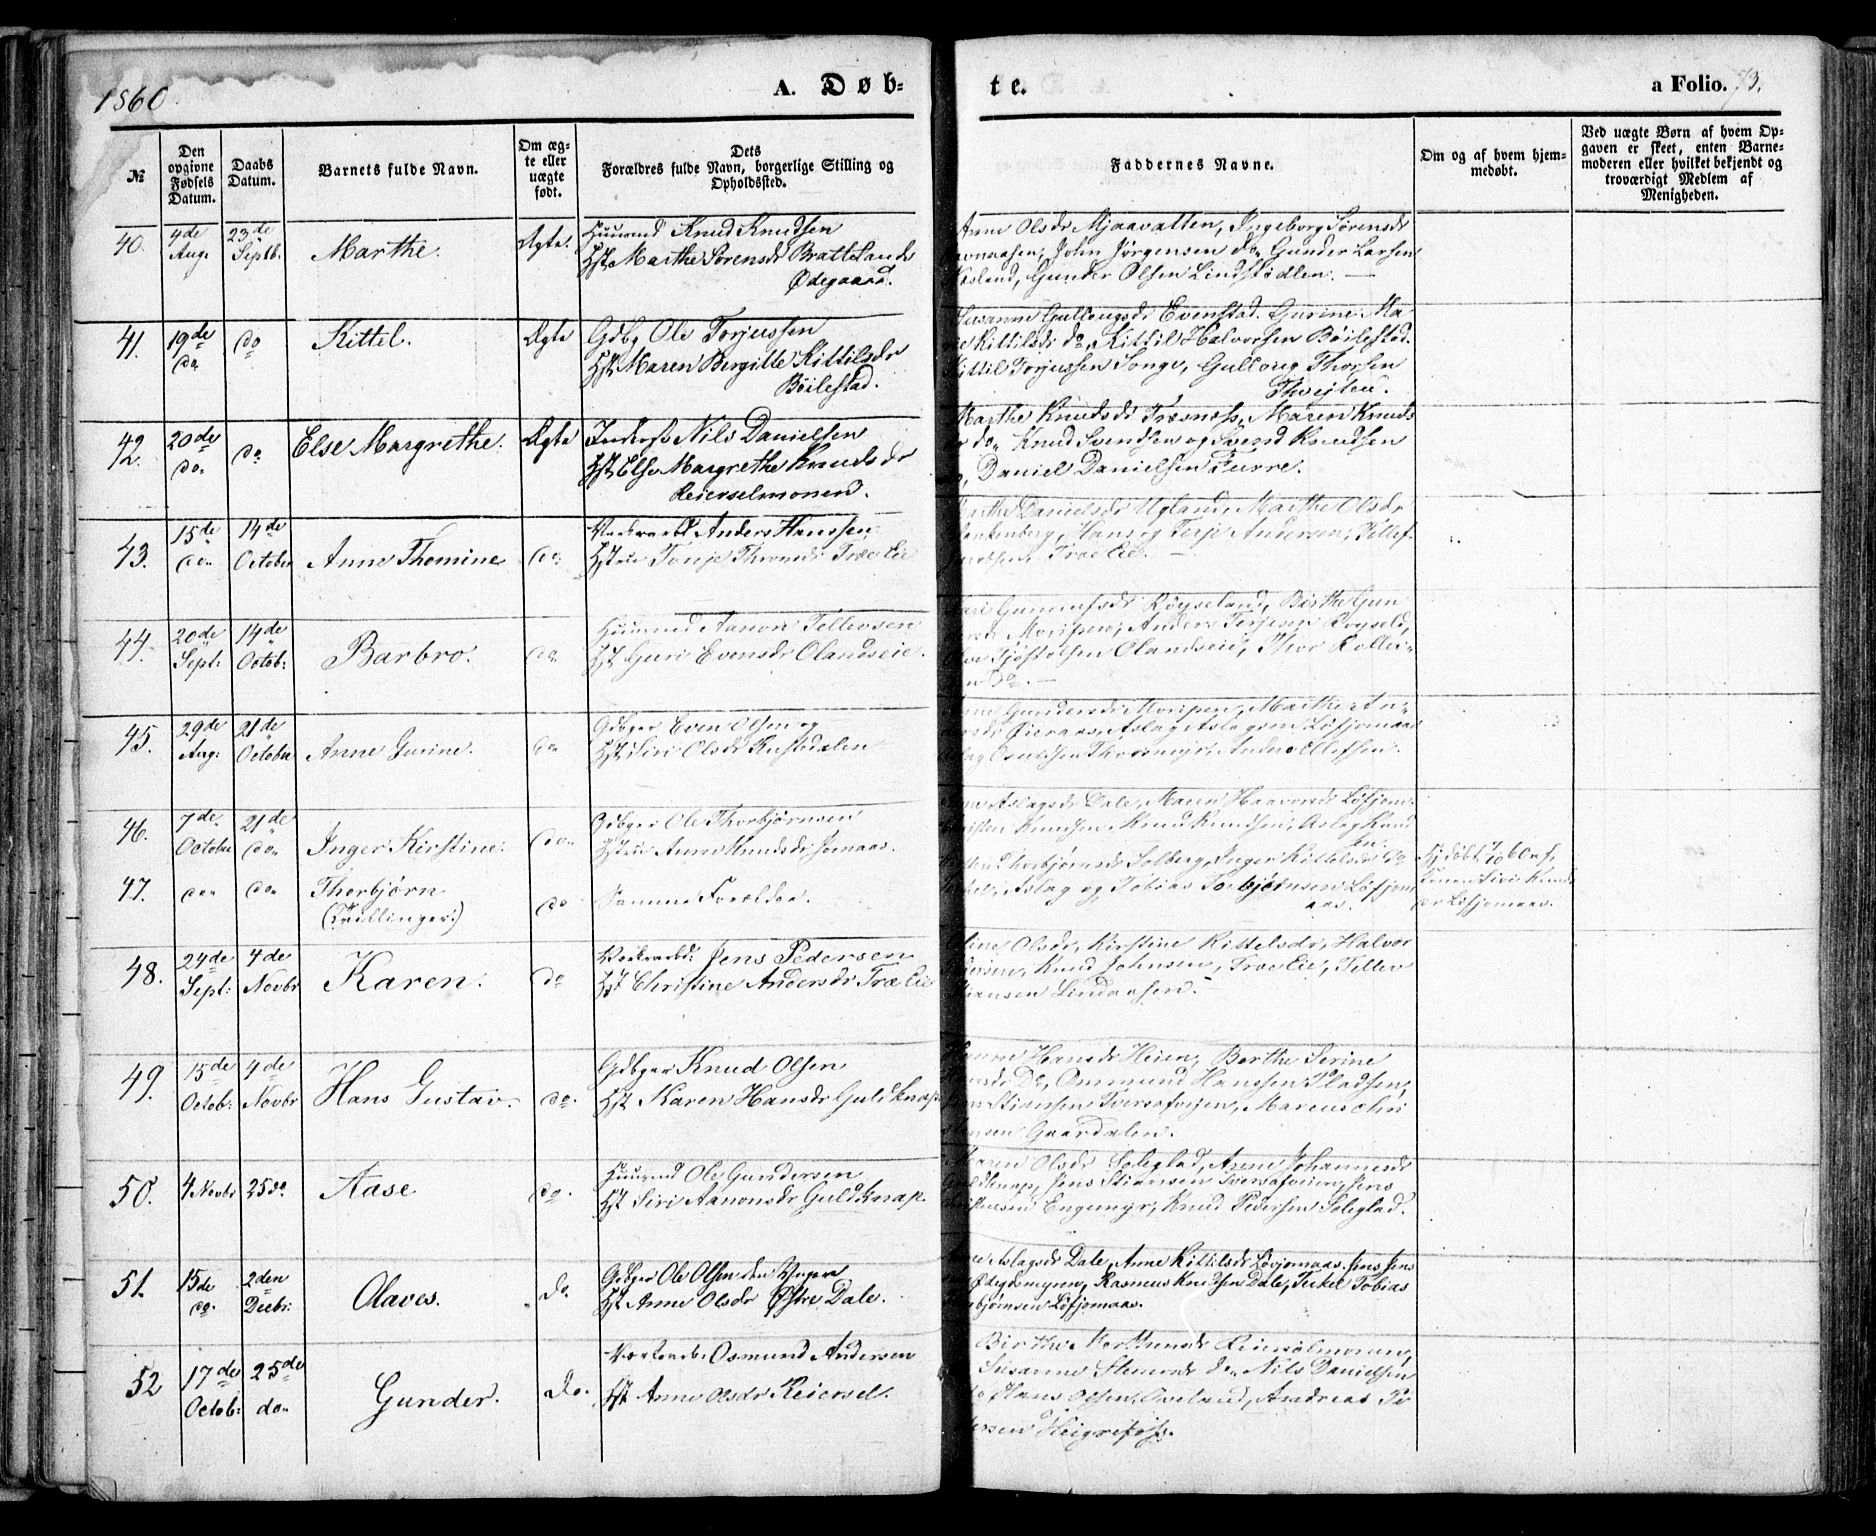 1860
A. Døb-
te.
a Folio. 73.
№
Den opgivne Fødsels Datum.
Daabs Datum.
Barnets fulde Navn.
Om ægte eller uægte født.
Dets Forældres fulde Navn, borgerlige Stilling og Opholdssted.
Faddernes Navne.
Om og af hvem hjemmedøbt.
Ved uægte Børn af hvem Opgaven er skeet, enten Barnemoderen eller hvilket bekjendt og troværdigt Medlem af Menigheden.
40. 4de Aug: 23de Septb: Marthe. Ægte.
Huusmd Knud Knudsen
Hst. Marthe Sørensdr Brattelands
Ødegaard.
Anne Olsdr Mjaavatten, Ingeborg Sørensdr
John Jørgensen do, Gunder Larsen
Gunder Olsen Lindstødlen.
41. 19de do do Kittel. Ægte
Gdbg Ole Torjussen
Hst Maren Birgitte Kittilsdr
Bøilestad.
Susanne Gullougsdr Evenstad. Gurine Ma-
Kittilsdr do, Kittil Halvorsen Bøilestad.
Kittil Torjussen Songe, Gulloug Thorsen
Thvejten.
42. 20de do do Else Margrethe. Ægte
Inderst Nils Danielsen
Hst Else Margrethe Knudsdr
Reierselmonen.
Marthe Knudsdr Træsnæss, Maren Knuds
do Knud Svendsen og Svend Knudsen
Daniel Danielsen Furre.
43. 15de do 14de October Anne Thomine do
Anders Hanssen
Hstru Tonje Thomasdr Træe Eie
Danielsdr Ugland, Marthe Olsdr
Hans og Terje Andersen, Tellef
Træe Eie.
44. 20de Sept: 14de Octob: Barbro. do
Huusmd Aanon Tellevsen
Hst Guri Evensdr Olandseie.
Gunnufsdr Røyseland, Birthe Gun
Moripen, Anders Terjesen Røyseld,
Olandseie, Thor Rollei-
do.
45. 29de Aug: 21de October Anne Gurine. do
Gdbger Even Olsen og
Hst Siri Olsdr Rustedalen
Gundersdr Moripen, Marthe An-
Øieraas, Aslag Aslagsen Løfjomaas
46. 7de October 21de do Inger Kirstine. do
Gdbger Ole Thorbjørnsen
Hstru Anne Knudsdr Jomaas.
Aslagsdr Dale, Maren Haavorsdr Løfjom-
Knudsen, Knud Knudsen, Aslag Knud
sen.
47. do do Thorbjørn do
(Tvillinger:)
Samme Forældre.
Thorbjørnsdr Solberg, Inger Kittelsdr do
Aslag og Tobias Torbjørnsen Løfjom
aas.
Hj. døbt 7/10 60 af
Siri Knuds
dr Løfjomaas.
48. 24de Sept: 4de Novbr Karen. do
Jens Pedersen
Hst Christine Andersdr Træ Eie
Olsdr, Kirstine Kittelsdr, Halvor
Knud Johnsen, Træe Eie, Tellev
Lindaasen.
49. 15de Octob: 4de Novbr Hans Gustav. do.
Gdbger Knud Olsen
Hst Karen Hansdr Guldknap
Hansdr Heien, Berthe Serine
do, Ommund Hanssen Pladsen,
Stiansen Tversaføien, Marcus Chri
Gaardalen.
50. 4 Novbr 25do Aase do.
Huusmd Ole Gundersen
Hst Siri Aanonsdr Guldknap.
Maren Olsdr Soleglad, Anne Johannesdr
Jens Stiansen Tversaføien, Jens
Engemyr, Knud Pedersen Soleglad.
51. 15de do. 2den Decbr: Olaves. do.
Gdbger Ole Olsen den Yngere
Hst Anne Olsdr Østre Dale.
Aslagsdr Dale, Anne Kittilsdr Løvjomaas. Jens Jens
Rasmus Knudsen Dale, Terkel Tobias
Løfjomaas.
52 17de Octob: 25de do Gunder. do.
Osmund Andersen
Hst Anne Olsdr Reiersel.
Birthe Reierselmonen,
Susanne do Nils Danielsen
Hans Olsen Oveland, Andreas Pe
dersen Heigrefoss.